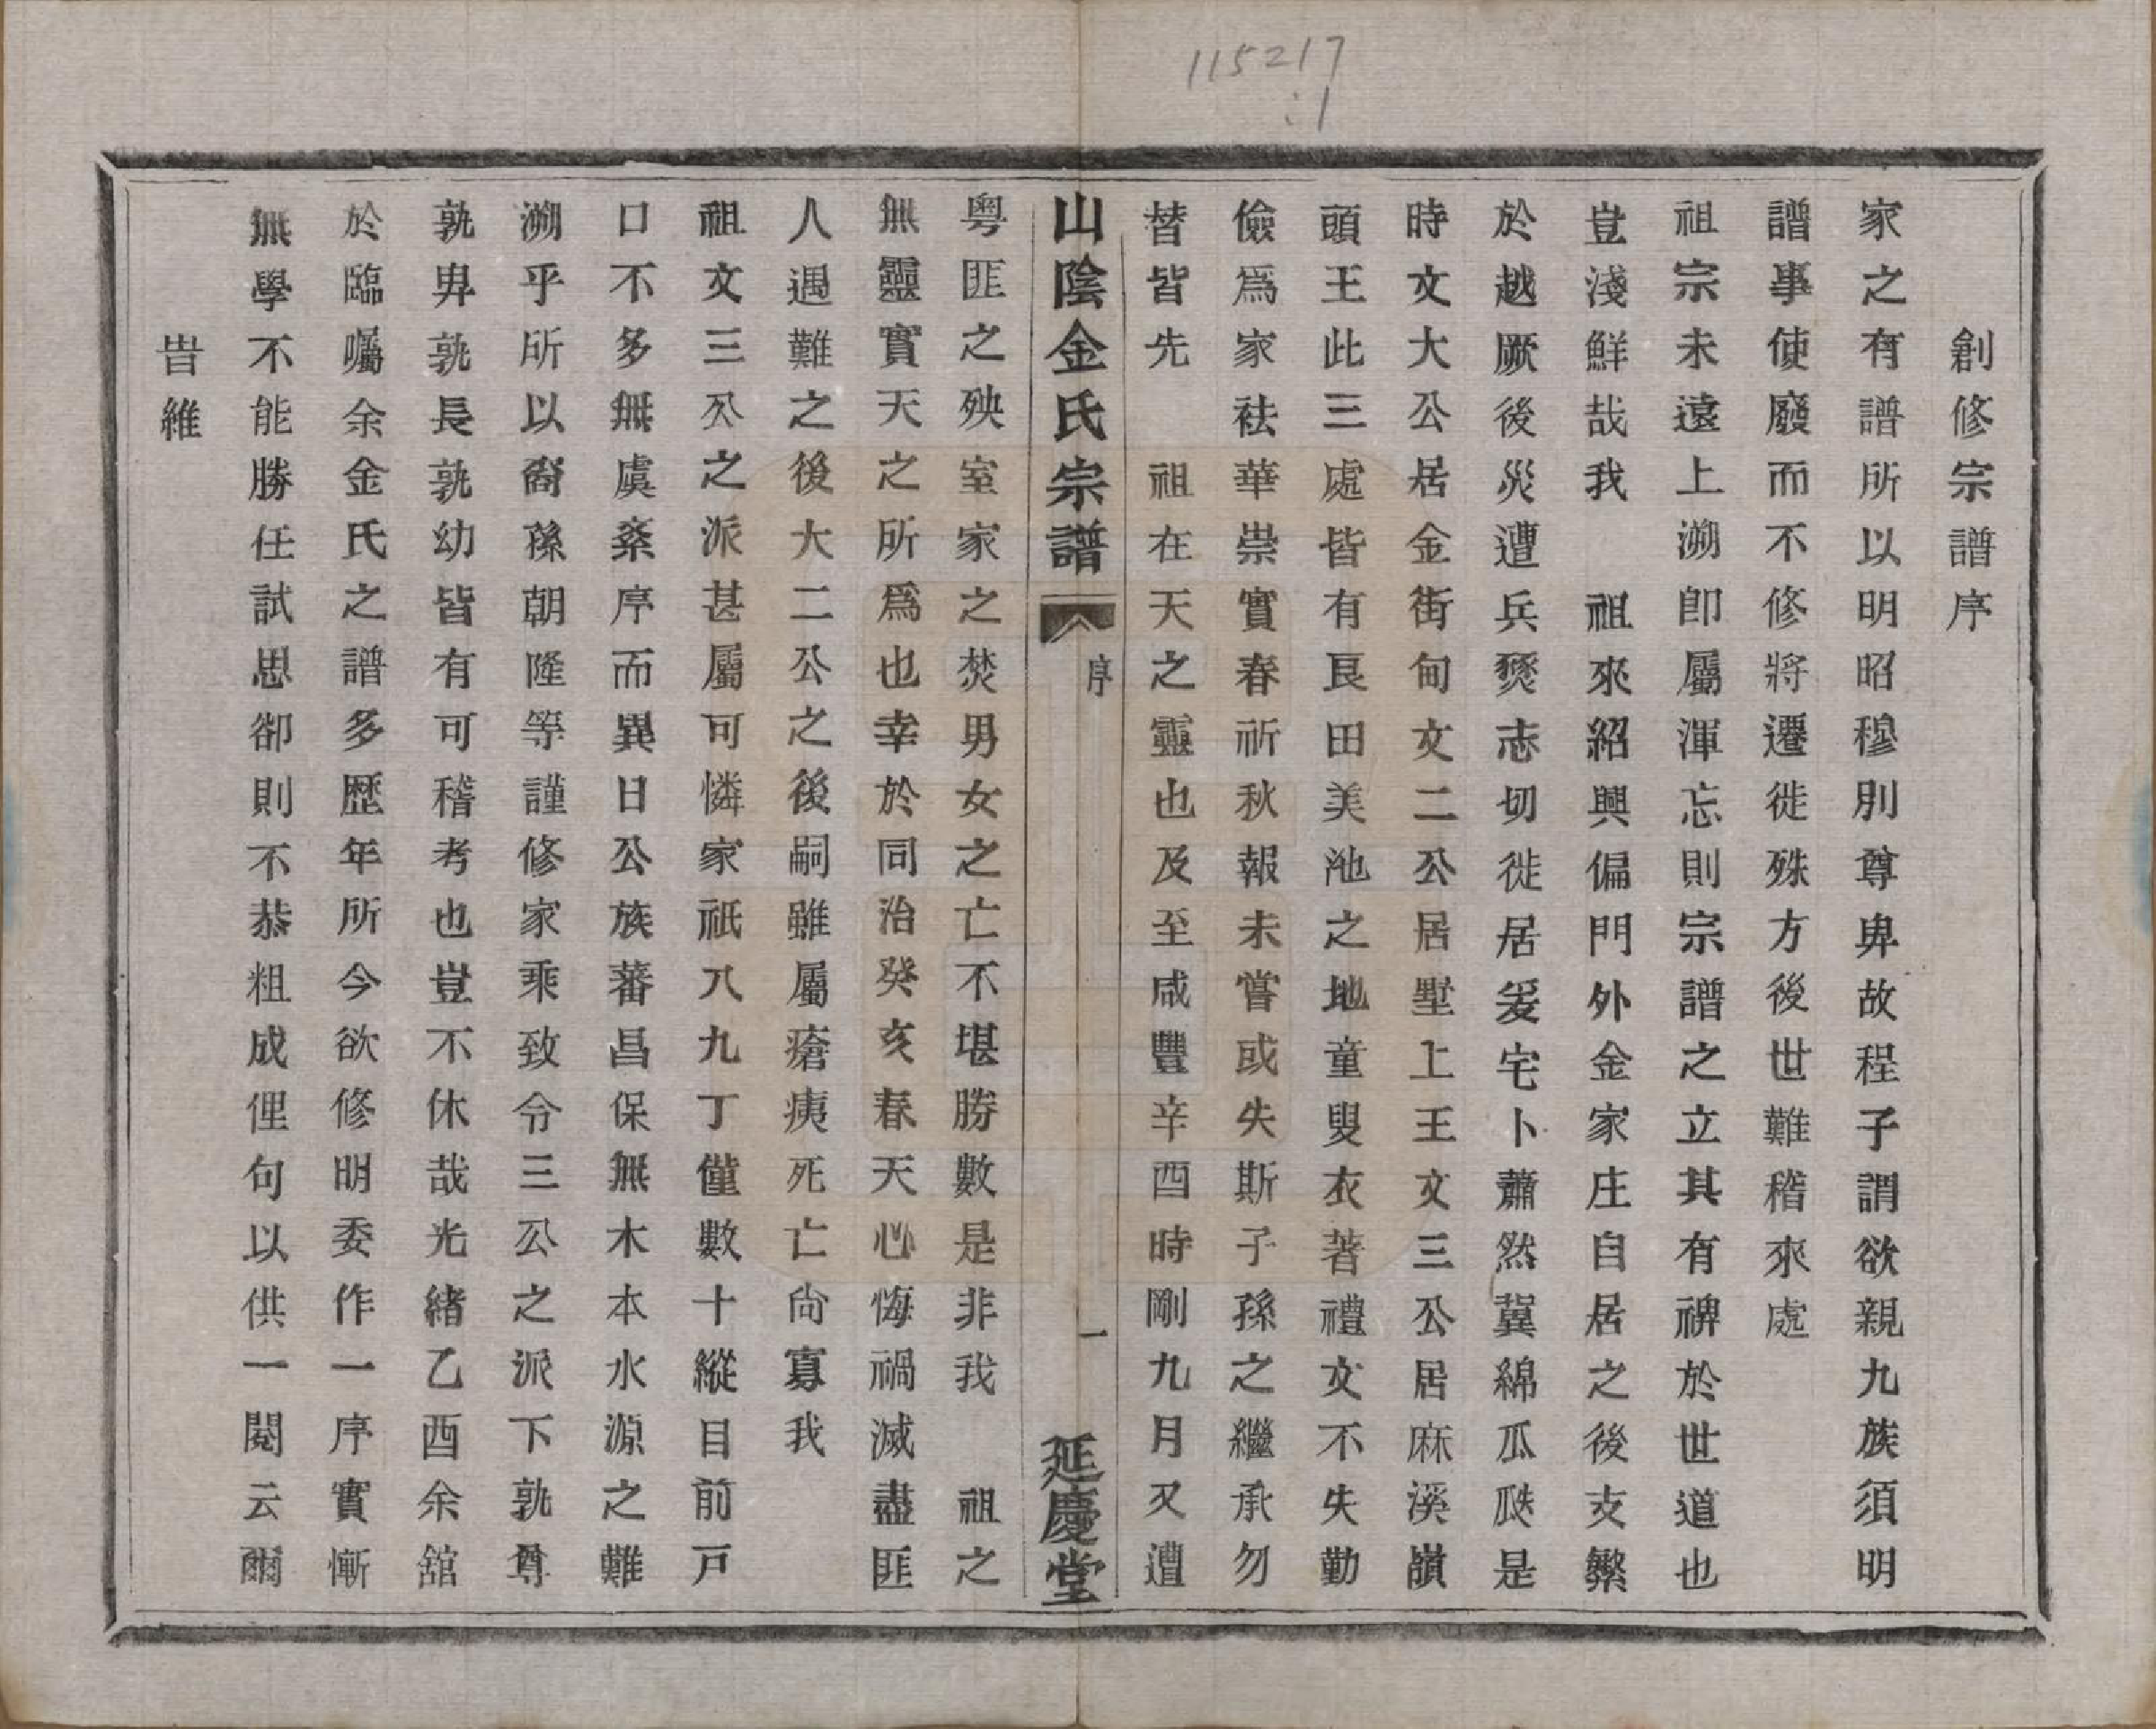 115217
:1
創修宗譜序
家之有譜所以明昭穆別尊卑故程子謂欲親九族須明
譜事使廢而不修將遷徙殊方後世難稽來處
祖宗未遠上溯卽屬渾忘則宗譜之立其有裨於世道也
豈淺鮮哉我　祖來紹興偏門外金家庄自居之後支繁
於越厥後災遭兵燹志切徙居爰宅卜蕭然冀綿瓜瓞是
時文大公居金街甸文二公居墅上王文三公居麻溪嶺
頭王此三處皆有良田美池之地童叟衣著禮文不失勤
儉爲家祛華崇實春祈秋報未嘗或失斯子孫之繼承勿
替皆先　祖在天之靈也及至咸豐辛酉時剛九月又遭
山陰金氏宗譜　序　一　延慶堂
粵匪之殃室家之焚男女之亡不堪勝數是非我　祖之
無靈實天之所爲也幸於同治癸亥春天心悔禍滅盡匪
人遇難之後大二公之後嗣雖屬瘡痍死亡尙寡我
祖文三公之派甚屬可憐家祇八九丁僅數十縱目前戸
口不多無虞桼序而異日公族蕃昌保無木本水源之難
溯乎所以裔孫朝隆等謹修家乘致令三公之派下孰尊
孰卑孰長孰幼皆有可稽考也豈不休哉光緒乙酉余舘
於臨囑余金氏之譜多歷年所今欲修明委作一序實慚
無學不能勝任試思卻則不恭粗成俚句以供一閱云爾
旹維